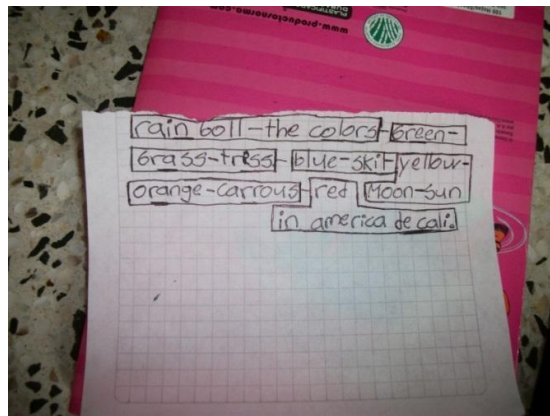 www.productosnorma.com
rain boll-the colors-Green-
Grass-tress-blue-skit yellow-
orange-carrous-red Moon-sun
in america de cali.